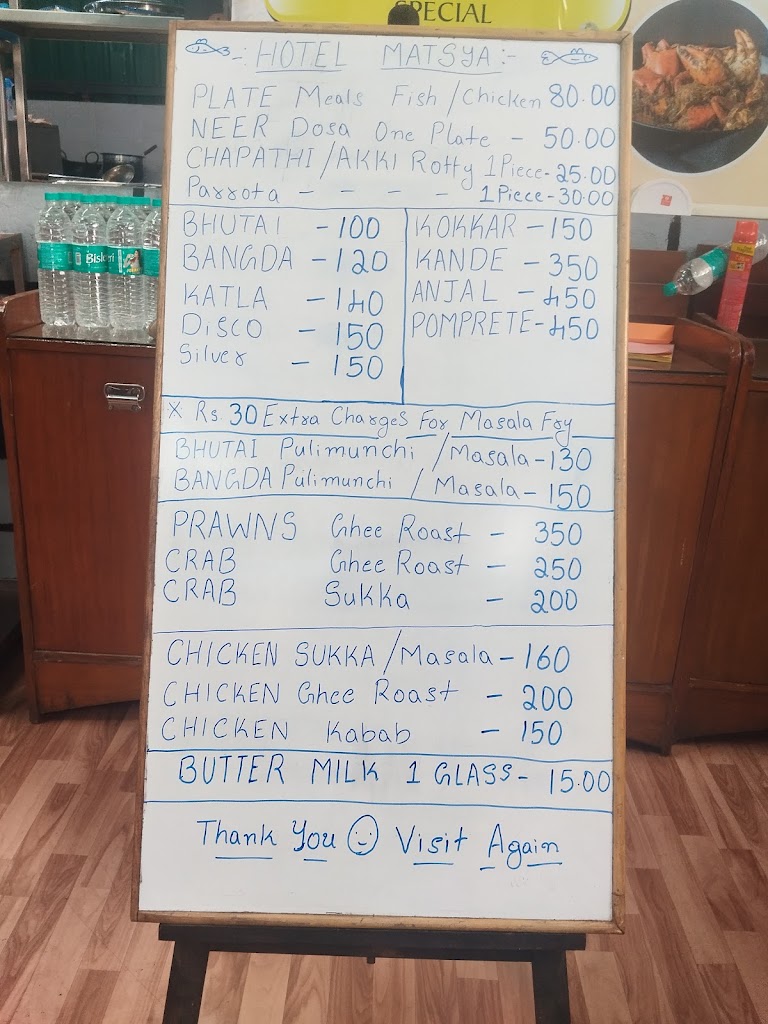 SPECIAL
-: HOTEL MATSYA :-
PLATE Meals Fish/Chicken 80.00
NEER Dosa One Plate - 50.00
CHAPATHI/AKKI Rotty 1Piece-25.00
Parrota - - - - 1Piece-30.00
BHUTAI - 100
BANGDA - 120
KATLA - 140
DISCO - 150
Silver - 150
KOKKAR - 150
KANDE - 350
ANJAL - 450
POMPRETE - 450
X Rs. 30 Extra Charges For Masala Fry
BHUTAI Pulimunchi / Masala - 130
BANGDA Pulimunchi / Masala - 150
PRAWNS Ghee Roast - 350
CRAB Ghee Roast - 250
CRAB Sukka - 200
CHICKEN SUKKA/Masala - 160
CHICKEN Ghee Roast - 200
CHICKEN Kabab - 150
BUTTER MILK 1 GLASS - 15.00
Thank You Visit Again
Bisleri